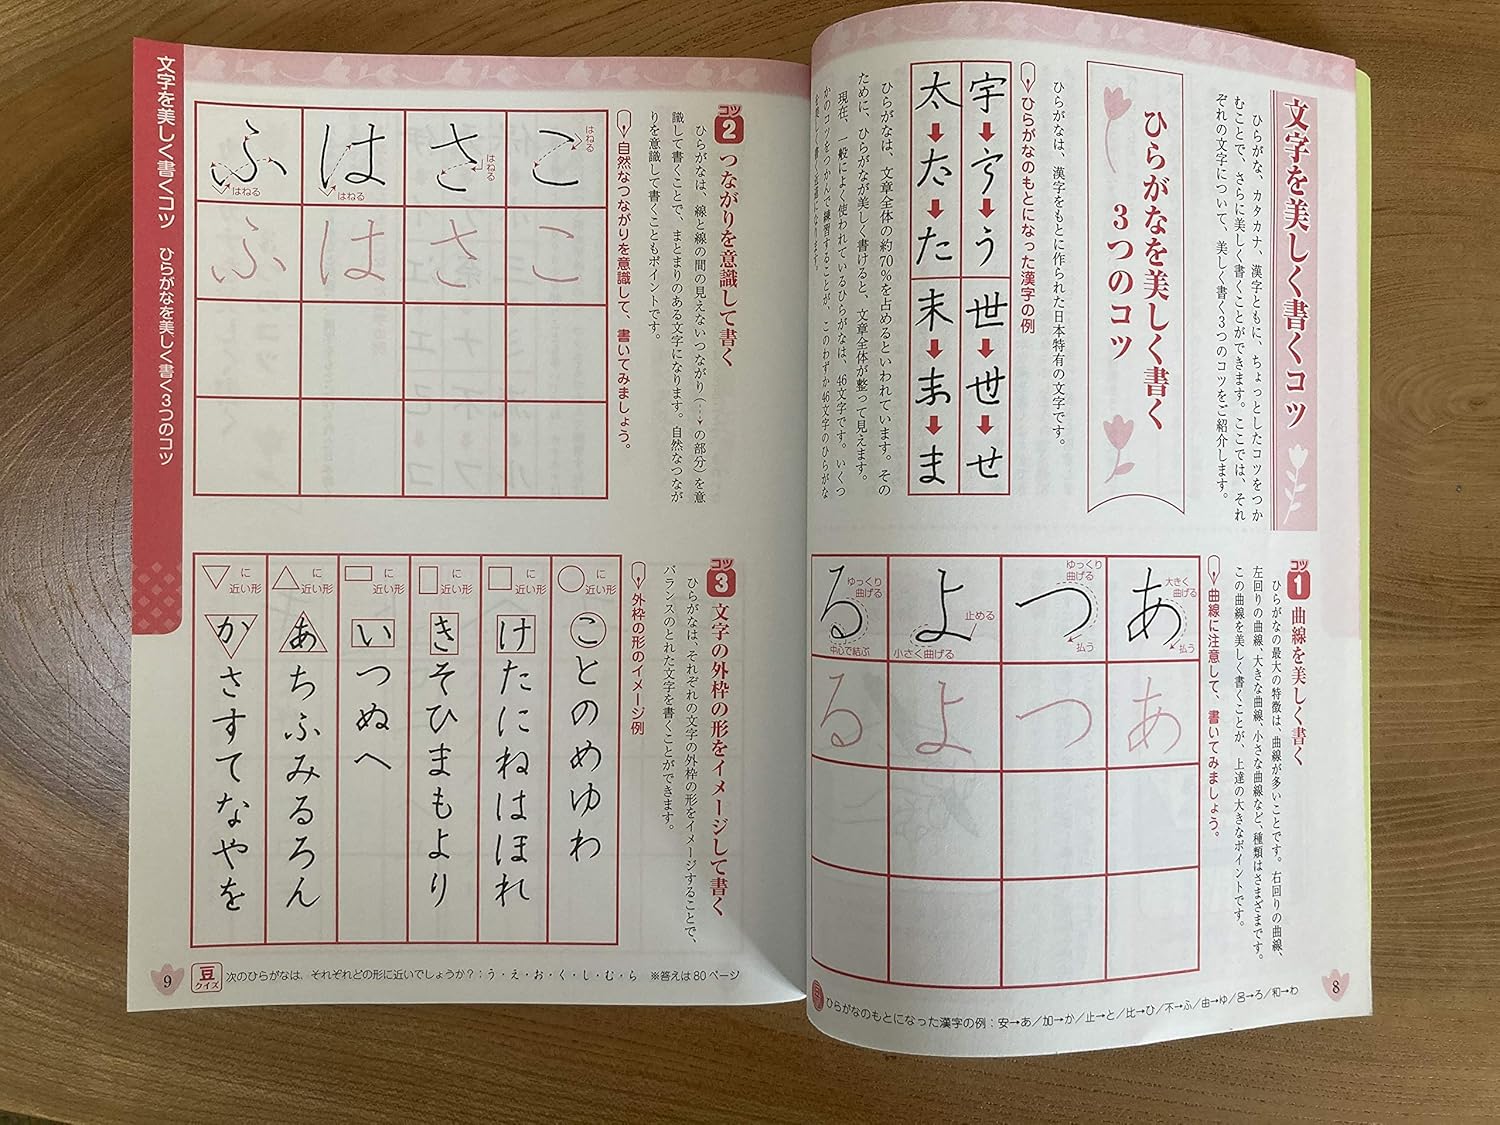 文字を美しく書くコツ
ひらがな、カタカナ、漢字ともに、ちょっとしたコツをつか
むことで、さらに美しく書くことができます。ここでは、それ
ぞれの文字について、美しく書く3つのコツをご紹介します。
ひらがなを美しく書く
3つのコツ
ひらがなは、漢字をもとに作られた日本特有の文字です。
ひらがなのもとになった漢字の例
宇→う→う
世→せ→せ
太→た→た
末→ま→ま
ひらがなは、文章全体の約70%を占めるといわれています。その
ために、ひらがなが美しく書けると、文章全体が整って見えます。
現在、一般によく使われているひらがなは、46文字です。いくつ
かのコツをつかんで練習することが、このわずか46文字のひらがな
コツ1 曲線を美しく書く
ひらがなの最大の特徴は、曲線が多いことです。右回りの曲線、
左回りの曲線、大きな曲線、小さな曲線など、種類はさまざまです。
この曲線を美しく書くことが、上達の大きなポイントです。
曲線に注意して、書いてみましょう。
あ
大きく曲げる
払う
つ
ゆっくり曲げる
払う
よ
止める
小さく曲げる
る
ゆっくり曲げる
中心で結ぶ
あ
つ
よ
る
ひらがなのもとになった漢字の例:安→あ/加→か/止→と/比→ひ/不→ふ/由→ゆ/呂→ろ/和→わ
8
文字を美しく書くコツ ひらがなを美しく書く3つのコツ
コツ2 つながりを意識して書く
ひらがなは、線と線の間の見えないつながり(⇢の部分)を意
識して書くことで、まとまりのある文字になります。自然なつなが
りを意識して書くこともポイントです。
自然なつながりを意識して、書いてみましょう。
こ
はねる
さ
はねる
は
はねる
ふ
はねる
こ
さ
は
ふ
コツ3 文字の外枠の形をイメージして書く
ひらがなは、それぞれの文字の外枠の形をイメージすることで、
バランスのとれた文字を書くことができます。
外枠の形のイメージ例
○に近い形
ことのめゆわ
□に近い形
けたにねはほれ
▯に近い形
きそひまもより
▭に近い形
いつぬへ
△に近い形
あちふみるろん
▽に近い形
かさすてなやを
豆クイズ 次のひらがなは、それぞれどの形に近いでしょうか?:う・え・お・く・し・む・ら ※答えは80ページ
9